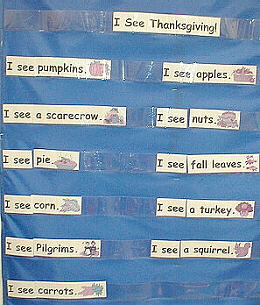 I See Thanksgiving!
I see pumpkins. I see apples.
I see a scarecrow. I see nuts.
I see pie. I see fall leaves.
I see corn. I see a turkey.
I see Pilgrims. I see a squirrel.
I see carrots.